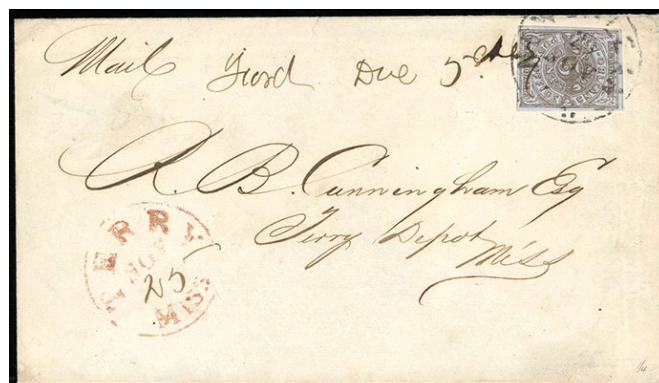 Mail Ford Due 5 cts
R. B. Cunningham Esq
Terry Depot
Miss
TERRY
NOV
25
MISS